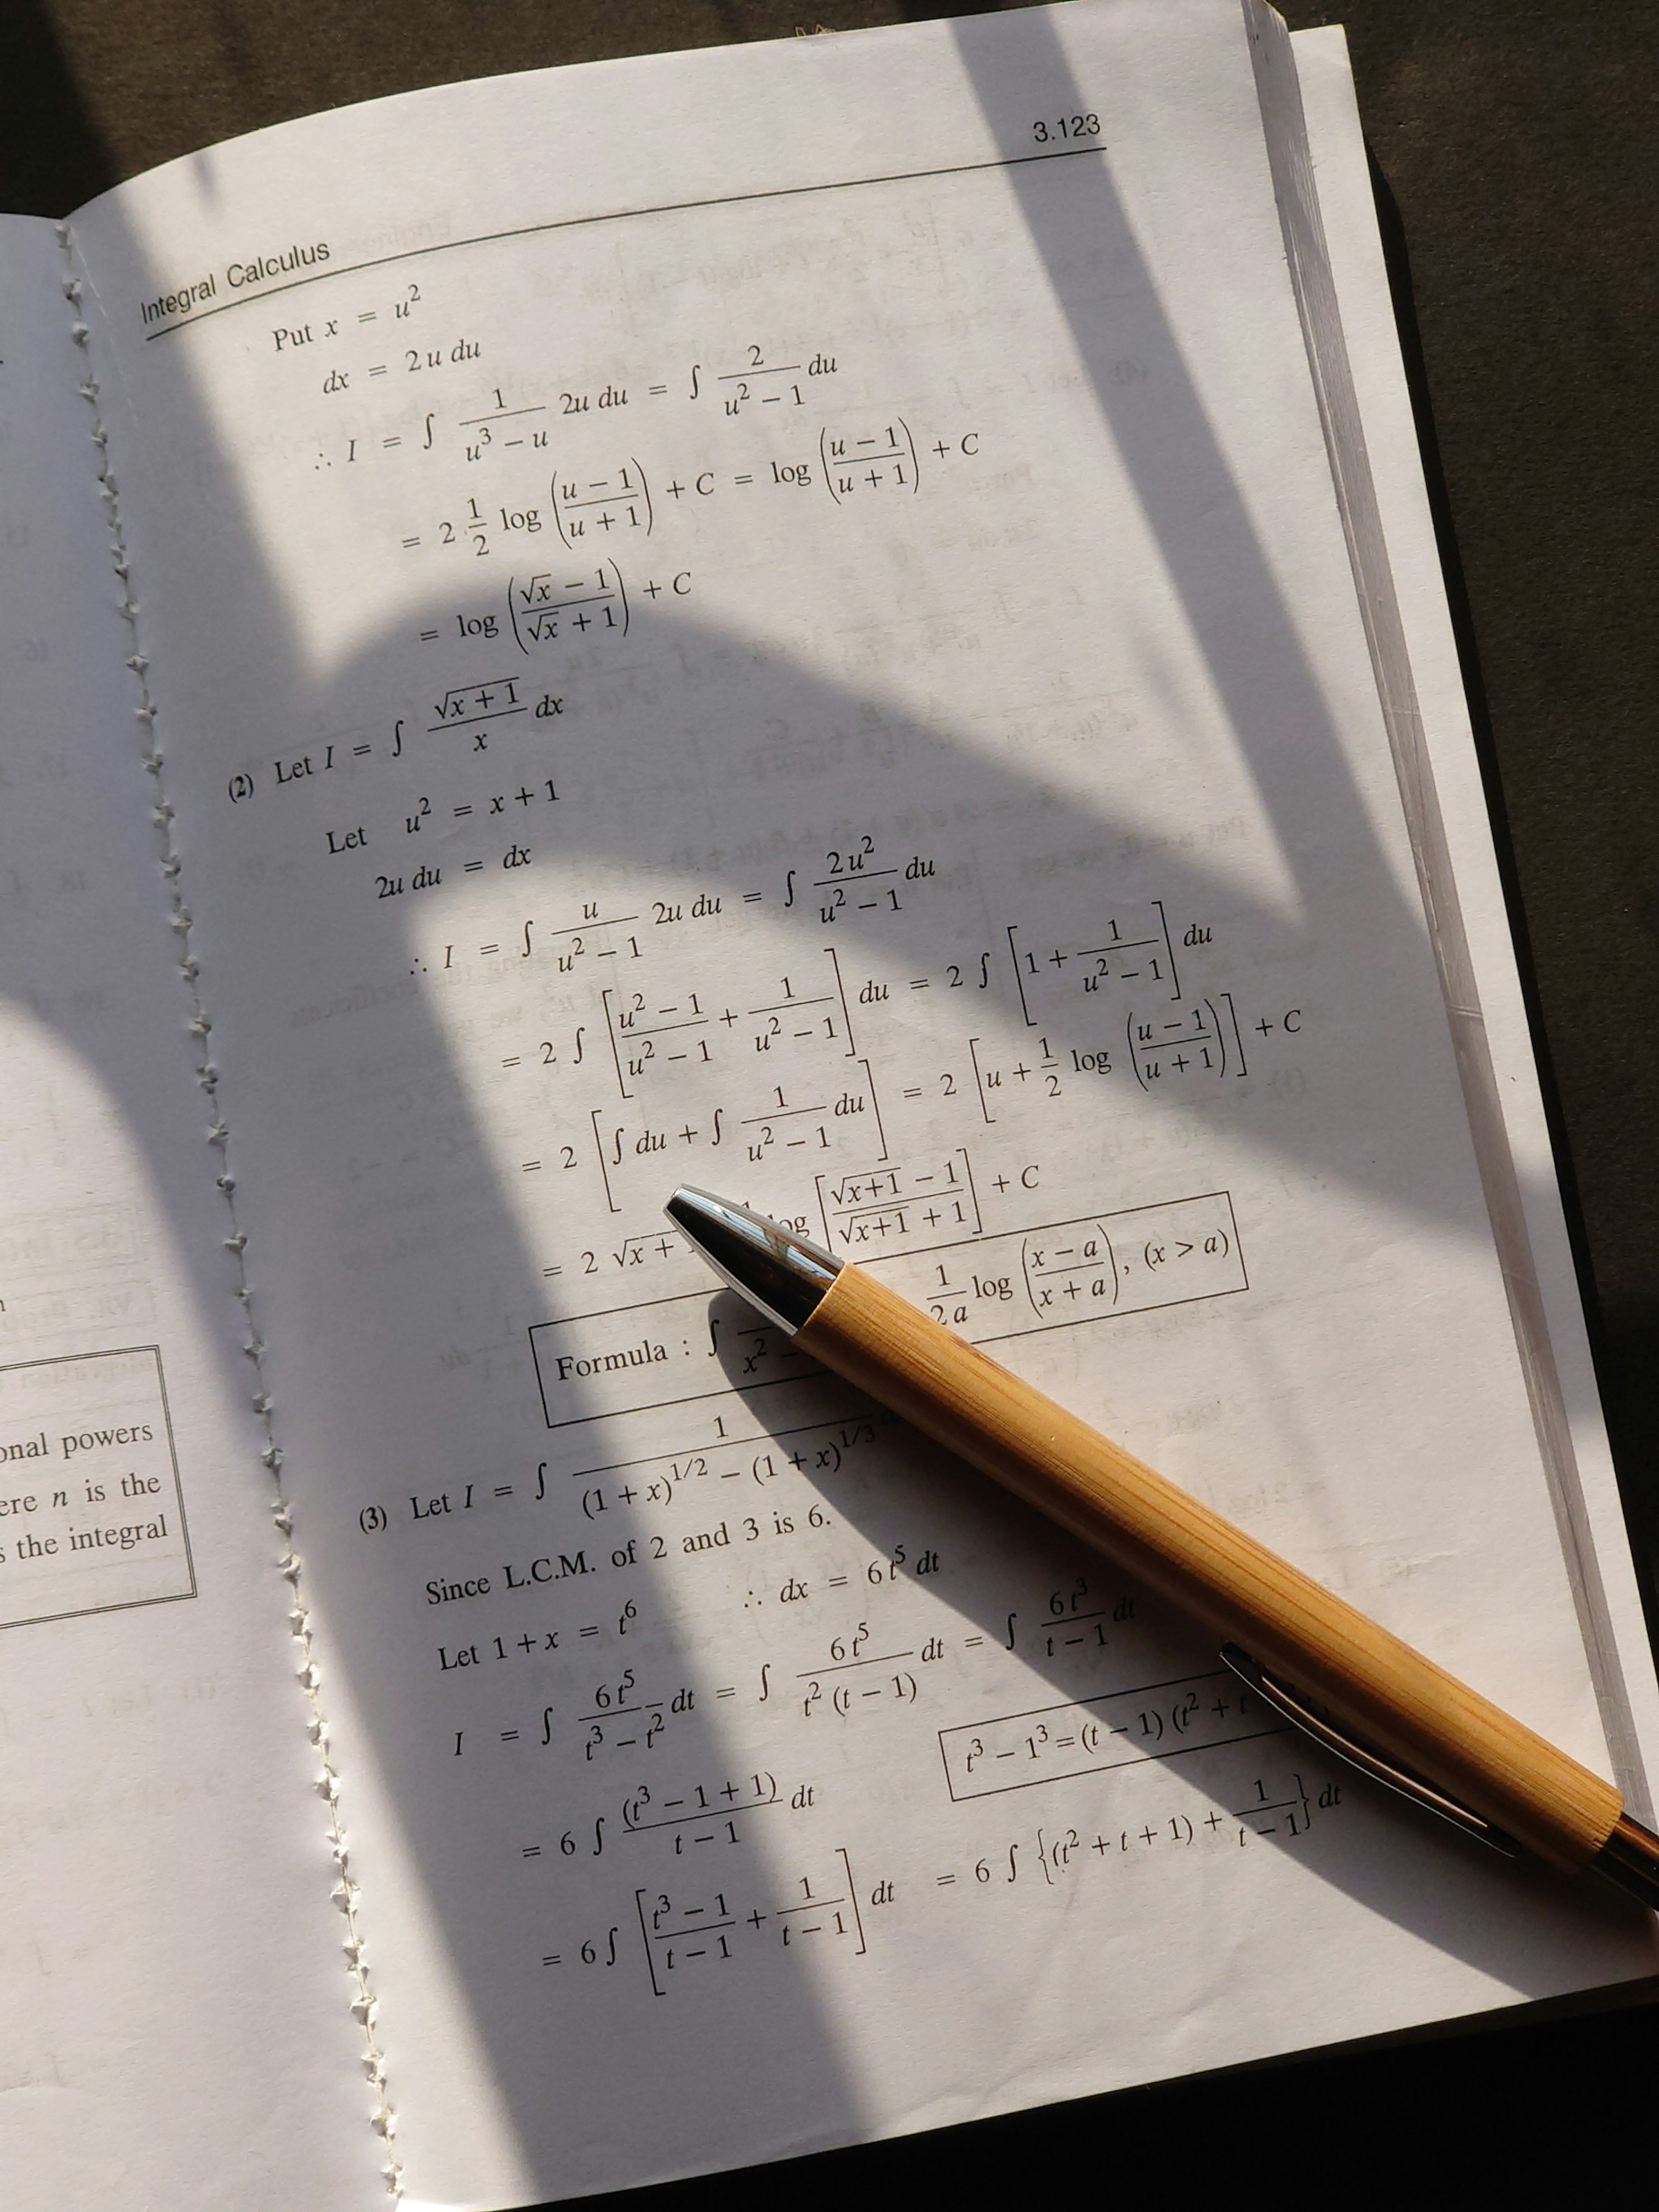 3.123
Integral Calculus
Put x = u²
dx = 2 u du
∴ I = ∫ 1/(u³ − u) 2u du = ∫ 2/(u² − 1) du
= 2 · 1/2 log ((u − 1)/(u + 1)) + C = log ((u − 1)/(u + 1)) + C
= log ((√x − 1)/(√x + 1)) + C
(2) Let I = ∫ √(x + 1)/x dx
Let u² = x + 1
2u du = dx
∴ I = ∫ u/(u² − 1) 2u du = ∫ 2u²/(u² − 1) du
= 2 ∫ [(u² − 1)/(u² − 1) + 1/(u² − 1)] du = 2 ∫ [1 + 1/(u² − 1)] du
= 2 [∫ du + ∫ 1/(u² − 1) du] = 2 [u + 1/2 log ((u − 1)/(u + 1))] + C
= 2 √x + log [(√(x+1) − 1)/(√(x+1) + 1)] + C
Formula : ∫ x² − 1/(2a) log ((x − a)/(x + a)), (x > a)
(3) Let I = ∫ 1/((1 + x)^(1/2) − (1 + x)^(1/3))
Since L.C.M. of 2 and 3 is 6.
Let 1 + x = t⁶ ∴ dx = 6 t⁵ dt
I = ∫ 6 t⁵/(t³ − t²) dt = ∫ 6 t⁵/(t² (t − 1)) dt = ∫ 6 t³/(t − 1) dt
t³ − 1³ = (t − 1) (t² + t
= 6 ∫ (t³ − 1 + 1)/(t − 1) dt
= 6 ∫ [(t³ − 1)/(t − 1) + 1/(t − 1)] dt = 6 ∫ {(t² + t + 1) + 1/(t − 1)} dt
onal powers
ere n is the
s the integral